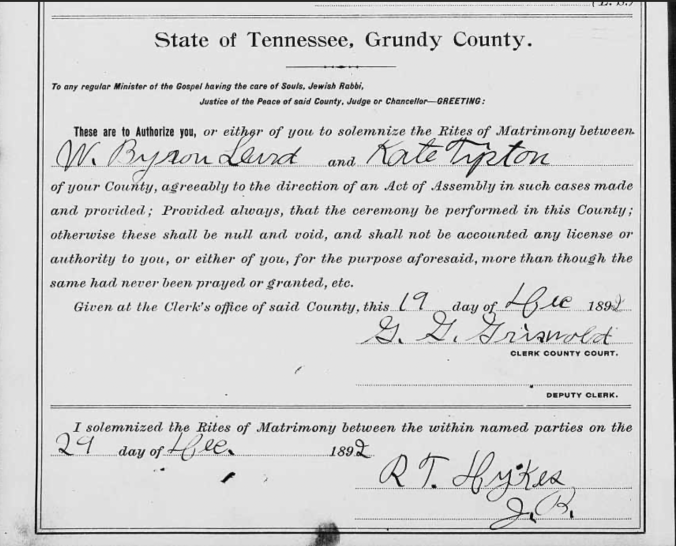 (L. S.)
State of Tennessee, Grundy County.
To any regular Minister of the Gospel having the care of Souls, Jewish Rabbi,
Justice of the Peace of said County, Judge or Chancellor—GREETING:
These are to Authorize you, or either of you to solemnize the Rites of Matrimony between
W. Byron and Kate Tipton
of your County, agreeably to the direction of an Act of Assembly in such cases made
and provided; Provided always, that the ceremony be performed in this County;
otherwise these shall be null and void, and shall not be accounted any license or
authority to you, or either of you, for the purpose aforesaid, more than though the
same had never been prayed or granted, etc.
Given at the Clerk's office of said County, this 19 day of Dec 1892
G. G. Griswold
CLERK COUNTY COURT.
DEPUTY CLERK.
I solemnized the Rites of Matrimony between the within named parties on the
29 day of Dec. 1892
R. T. Hykes